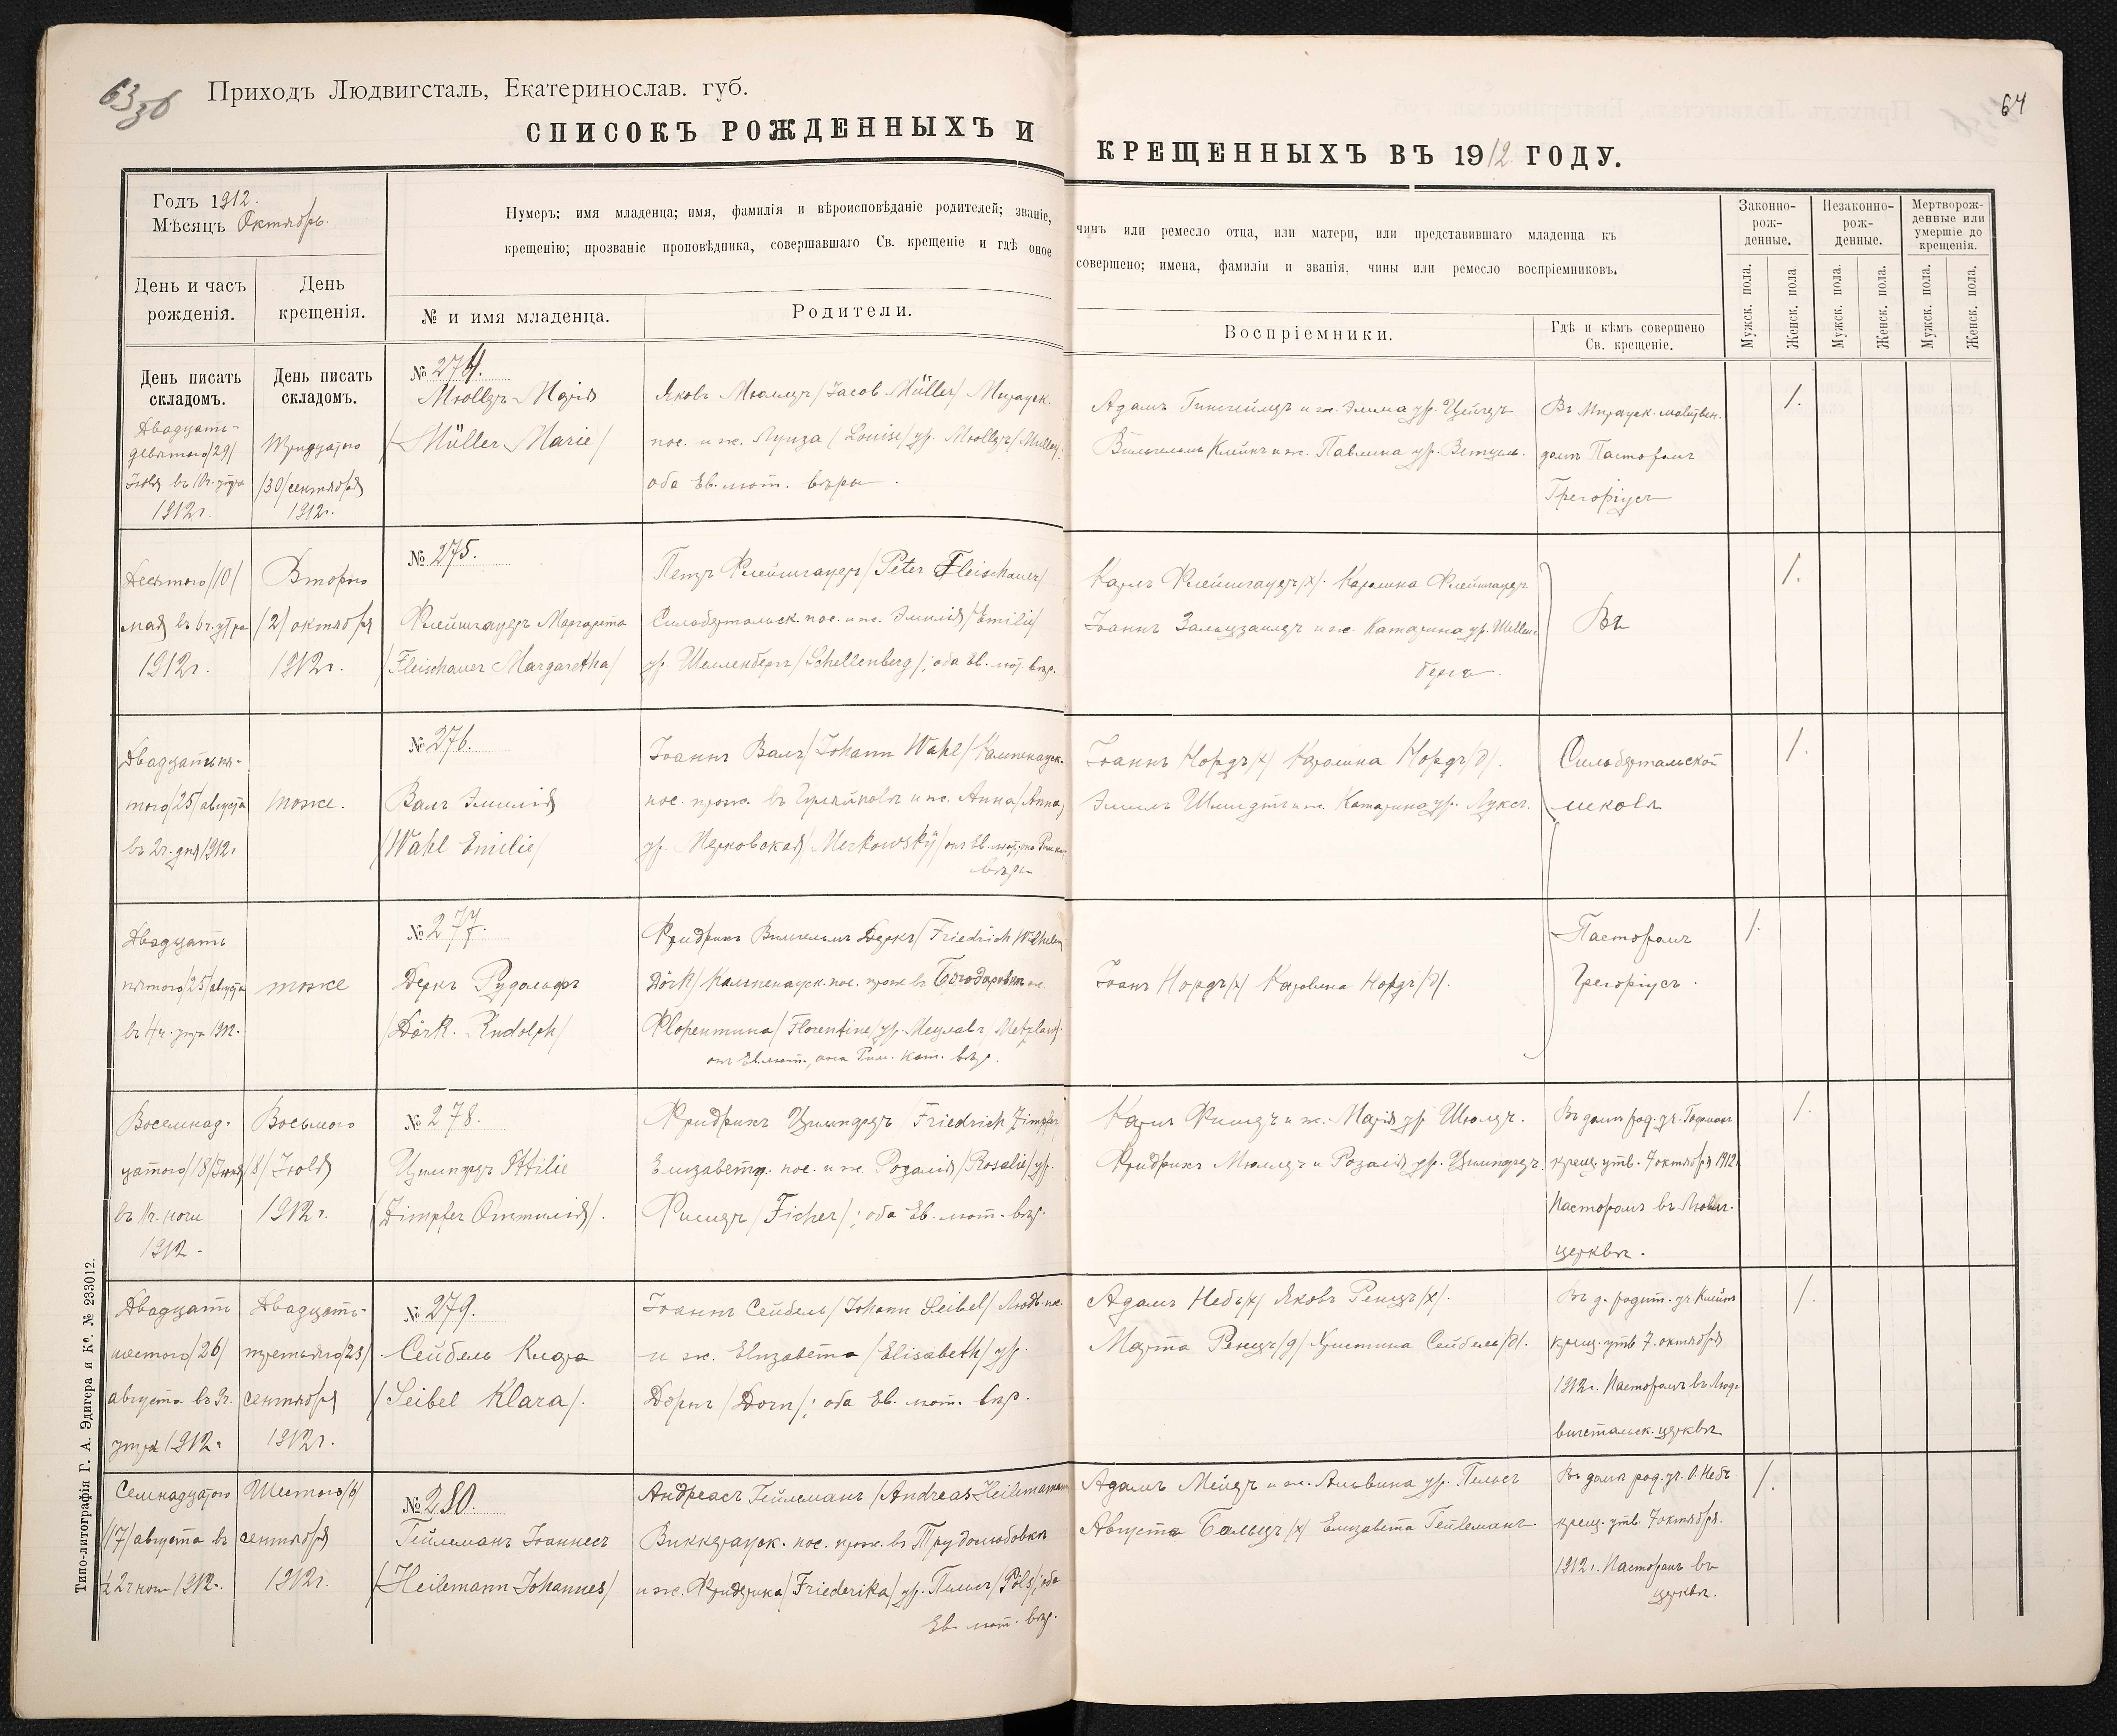 63 зб
Приходъ Людвигсталь, Екатеринослав. губ.
СПИСОКЪ РОЖДЕННЫХЪ И
КРЕЩЕННЫХЪ ВЪ 1912 ГОДУ.
64
Годъ 1912.
Мѣсяцъ Октябрь.
День и часъ рожденія.
День крещенія.
Нумеръ; имя младенца; имя, фамилія и вѣроисповѣданіе родителей; званіе,
крещенію; прозваніе проповѣдника, совершавшаго Св. крещеніе и гдѣ оное
№ и имя младенца.
Родители.
чинъ или ремесло отца, или матери, или представившаго младенца къ
совершено; имена, фамиліи и званія, чины или ремесло воспріемниковъ.
Воспріемники.
Гдѣ и кѣмъ совершено
Св. крещеніе.
Законно-
рож-
денные.
Незаконно-
рож-
денные.
Мертворож-
денные или
умершіе до
крещенія.
Мужск. пола.
Женск. пола
Мужск. пола.
Женск. пола.
Мужск. пола.
Женск. пола.
День писать
складомъ.
День писать
складомъ.
Двадцать-
девятаго /29/
Іюля
1912 г.
Тридцатаго
/30/ сентября
1912 г.
№ 274.
Мюллеръ Марія
/Müller Marie/
Яковъ Мюллеръ /Jacob Müller/
пос. и ж. Луиза /Louise/ ур. Мюллеръ /Müller/,
оба Ев. лют. вѣры.
Адамъ и ж. Эмма ур.
Вильгельмъ Клейнъ и ж. Павлина ур.
Въ
домѣ Пасторомъ
Грегоріусъ
1.
Десятаго /10/
мая въ 6 ч. утра
1912 г.
Второго
/2/ октября
1912 г.
№ 275.
Флейшгауеръ Маргарета
/Fleischauer Margaretha/
Петръ Флейшгауеръ /Peter Fleischauer/
Сильбертальск. пос. и ж. Эмилія /Emilie/
ур. Шелленбергъ /Schellenberg/; оба Ев. лют. вѣр.
Карлъ Флейшгауеръ /х/. Каролина Флейшгауеръ
Іоаннъ и ж. Катарина ур. Шеллен-
бергъ.
Въ
1.
Двадцатьпя-
таго /25/ августа
въ 2 ч. дня 1912 г.
тоже.
№ 276.
Валъ Эмилія
/Wahl Emilie/
Іоаннъ Валъ /Johann Wahl/
пос. прож. въ и ж. Анна /Anna/
ур. Мерковская /Merkowsky/ онъ Ев. лют.
вѣры
Іоаннъ Нордъ /х/ Каролина Нордъ /д/.
Эмиль Шмидтъ и ж. Катарина ур. Луксъ.
Сильбертальской
школѣ
1.
Двадцать
пятаго /25/ августа
въ 4 ч. утра 1912.
тоже
№ 277.
Деркъ Рудольфъ
/Dörk. Rudolph/
Фридрихъ Вильгельмъ Деркъ /Friedrich Wilhelm
Dörk/ пос. прож. въ Богодаровкѣ и ж.
Флорентина /Florentine/ ур. Мецлавъ /Metzlaw/.
онъ Ев. лют., она Рим. кат. вѣр.
Іоаннъ Нордъ /х/ Каролина Нордъ /д/.
Пасторомъ
Грегоріусъ.
1.
Восемнад-
цатаго /18/ Іюня
въ 11 ч. ночи
1912.
Восьмого
/8/ Іюля
1912 г.
№ 278.
Цимпферъ Ottilie
/Zimpfer Оттилія/.
Фридрихъ Цимпферъ /Friedrich Zimpfer/
Елизаветр. пос. и ж. Розалія /Rosalie/ ур.
Фишеръ /Ficher/; оба Ев. лют. вѣр.
Карлъ Фишеръ и ж. Марія ур.
Фридрихъ Мюллеръ и Розалія ур. Цимпферъ.
Въ домѣ род. уч.
крещ. утв. 7 октября 1912
Пасторомъ въ Людвиг.
церквѣ.
1.
Двадцать
шестого /26/
августа въ 9 ч.
утра 1912 г.
Двадцать-
третьяго /23/
сентября
1912 г.
№ 279.
Сейбель Клара
/Seibel Klara/.
Іоаннъ Сейбель /Johann Seibel/ Людв. пос.
и ж. Елизавета /Elisabeth/ ур.
Дорнъ /Dorn/; оба Ев. лют. вѣр.
Адамъ Небъ /х/ Яковъ Ренцъ /х/.
Марта Ренцъ /д/ Христина Сейбель /д/.
Въ д. родит. уч. Клейнъ
крещ. утв. 7. октября
1912 г. Пасторомъ въ Люд-
вигстальск. церквѣ
1.
Семнадцатаго
/17/ августа въ
1912 г.
Шестого /6/
сентября
1912 г.
№ 280.
Гейлеманъ Іоаннесъ
/Heilemann Johannes/
Андреасъ Гейлеманъ /Andreas Heilemann/
Виккерауск. пос. прож. въ Трудолюбовкѣ
и ж. Фридерика /Friederika/ ур. Пельсъ /Pöls/; оба
Ев. лют. вѣр.
Адамъ Мейеръ и ж. Альвина ур. Пельсъ
Августъ Бельцъ /х/ Елизавета Гейлеманъ.
Въ домѣ род. уч. О. Небъ
крещ. утв. 7 октября.
1912 г. Пасторомъ въ
церквѣ.
1.
Типо-литографія Г. А. Эдигера и Ко. № 233012.